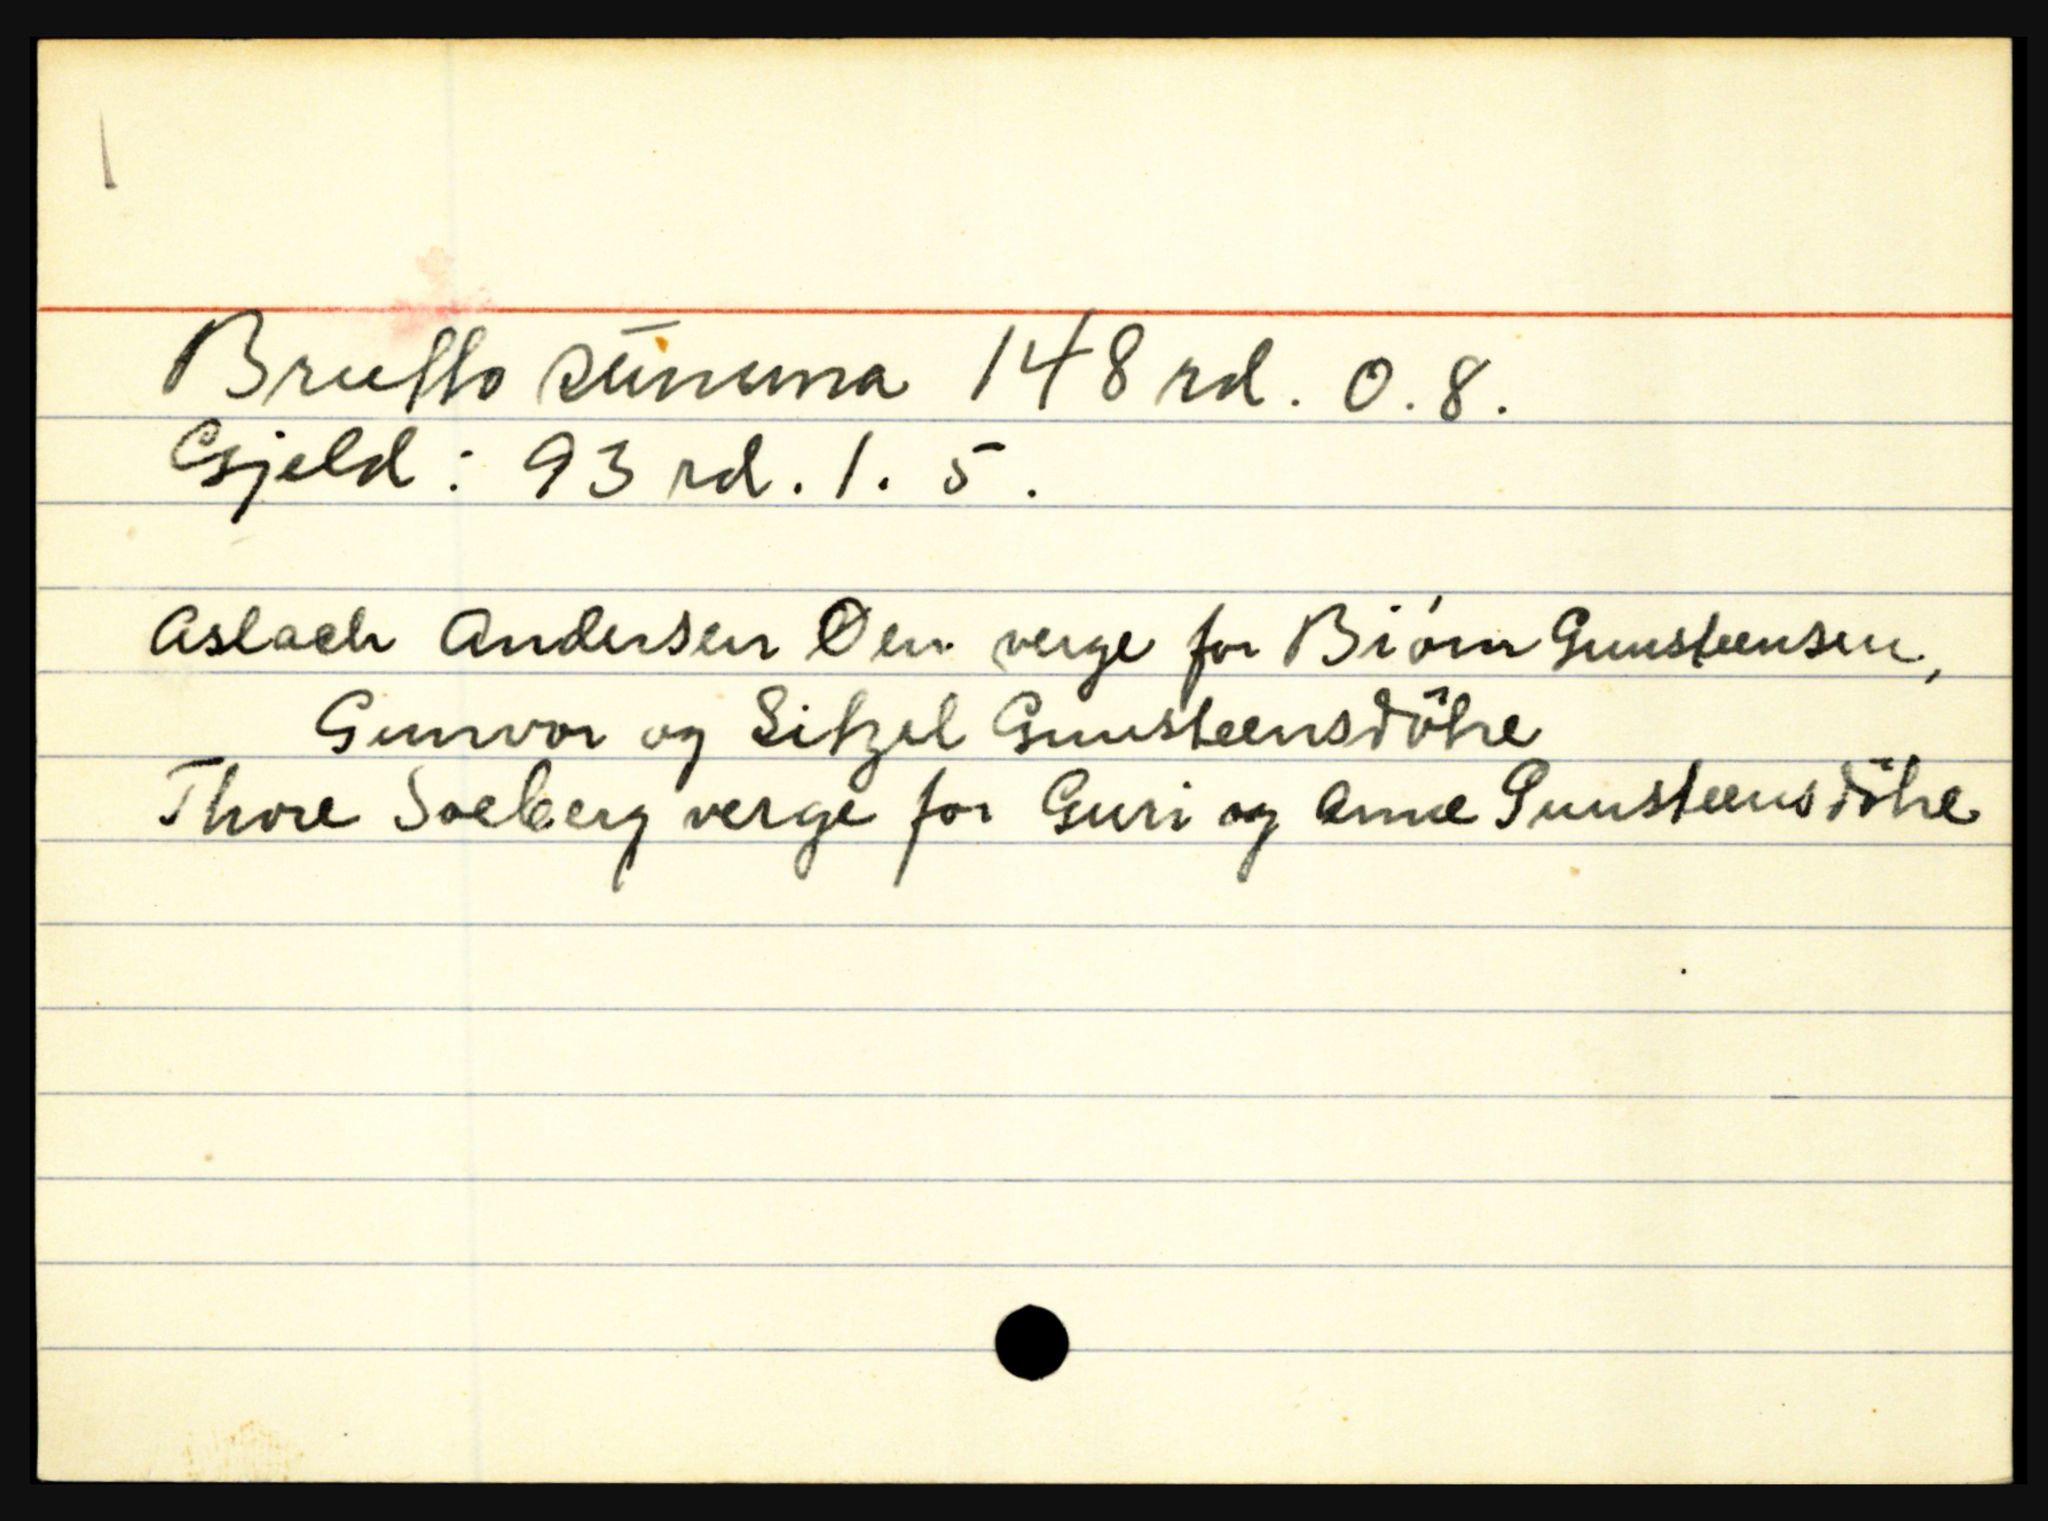 Brutto summa 148 rd. 0.8.
Gjeld: 93 rd. 1. 5.
Aslach Andersen Øen verge for Biörn Gunsteensen,
Gunvor og Sitzel Gunsteensdötre
Thore Soeberg verge for Guri og Anne Gunsteensdötre